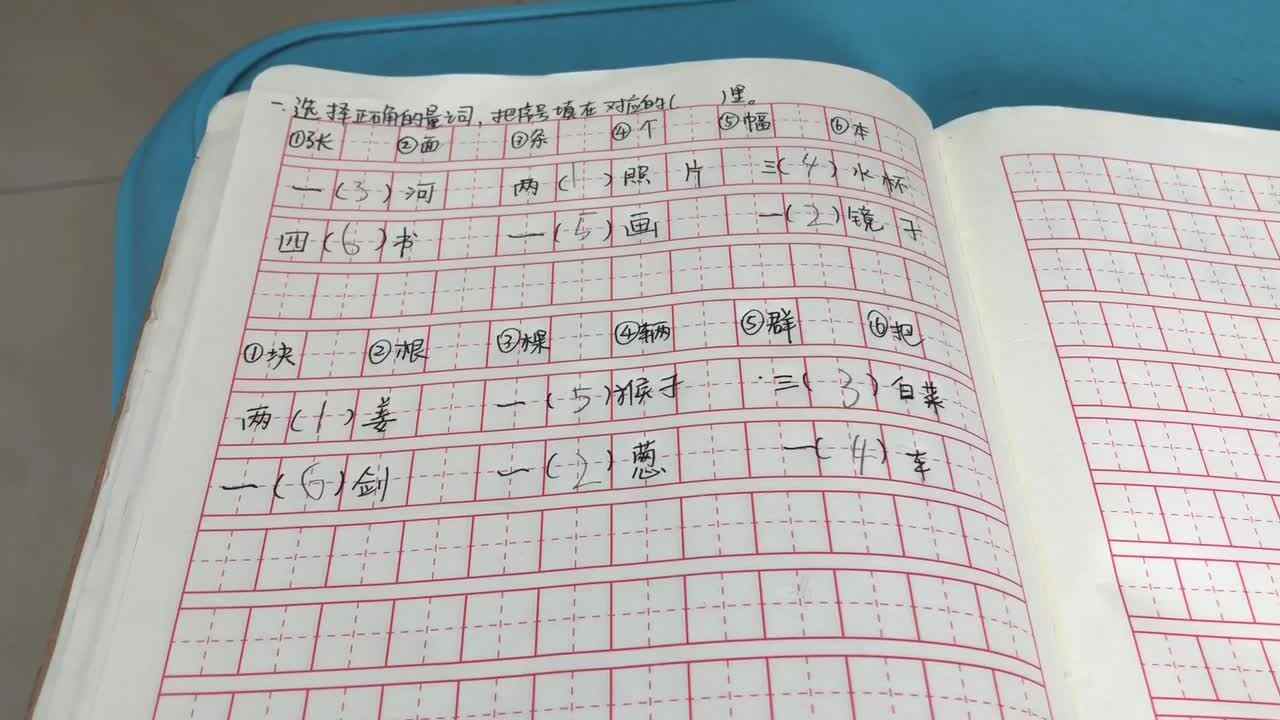 一.选择正确的量词,把序号填在对应的( )里。
①张 ②面 ③条 ④个 ⑤幅 ⑥本
一(3)河 两(1)照片 三(4)水杯
四(6)书 一(5)画 一(2)镜子
①块 ②根 ③棵 ④辆 ⑤群 ⑥把
两(1)姜 一(5)猴子 三(3)白菜
一(6)剑 一(2)葱 一(4)车